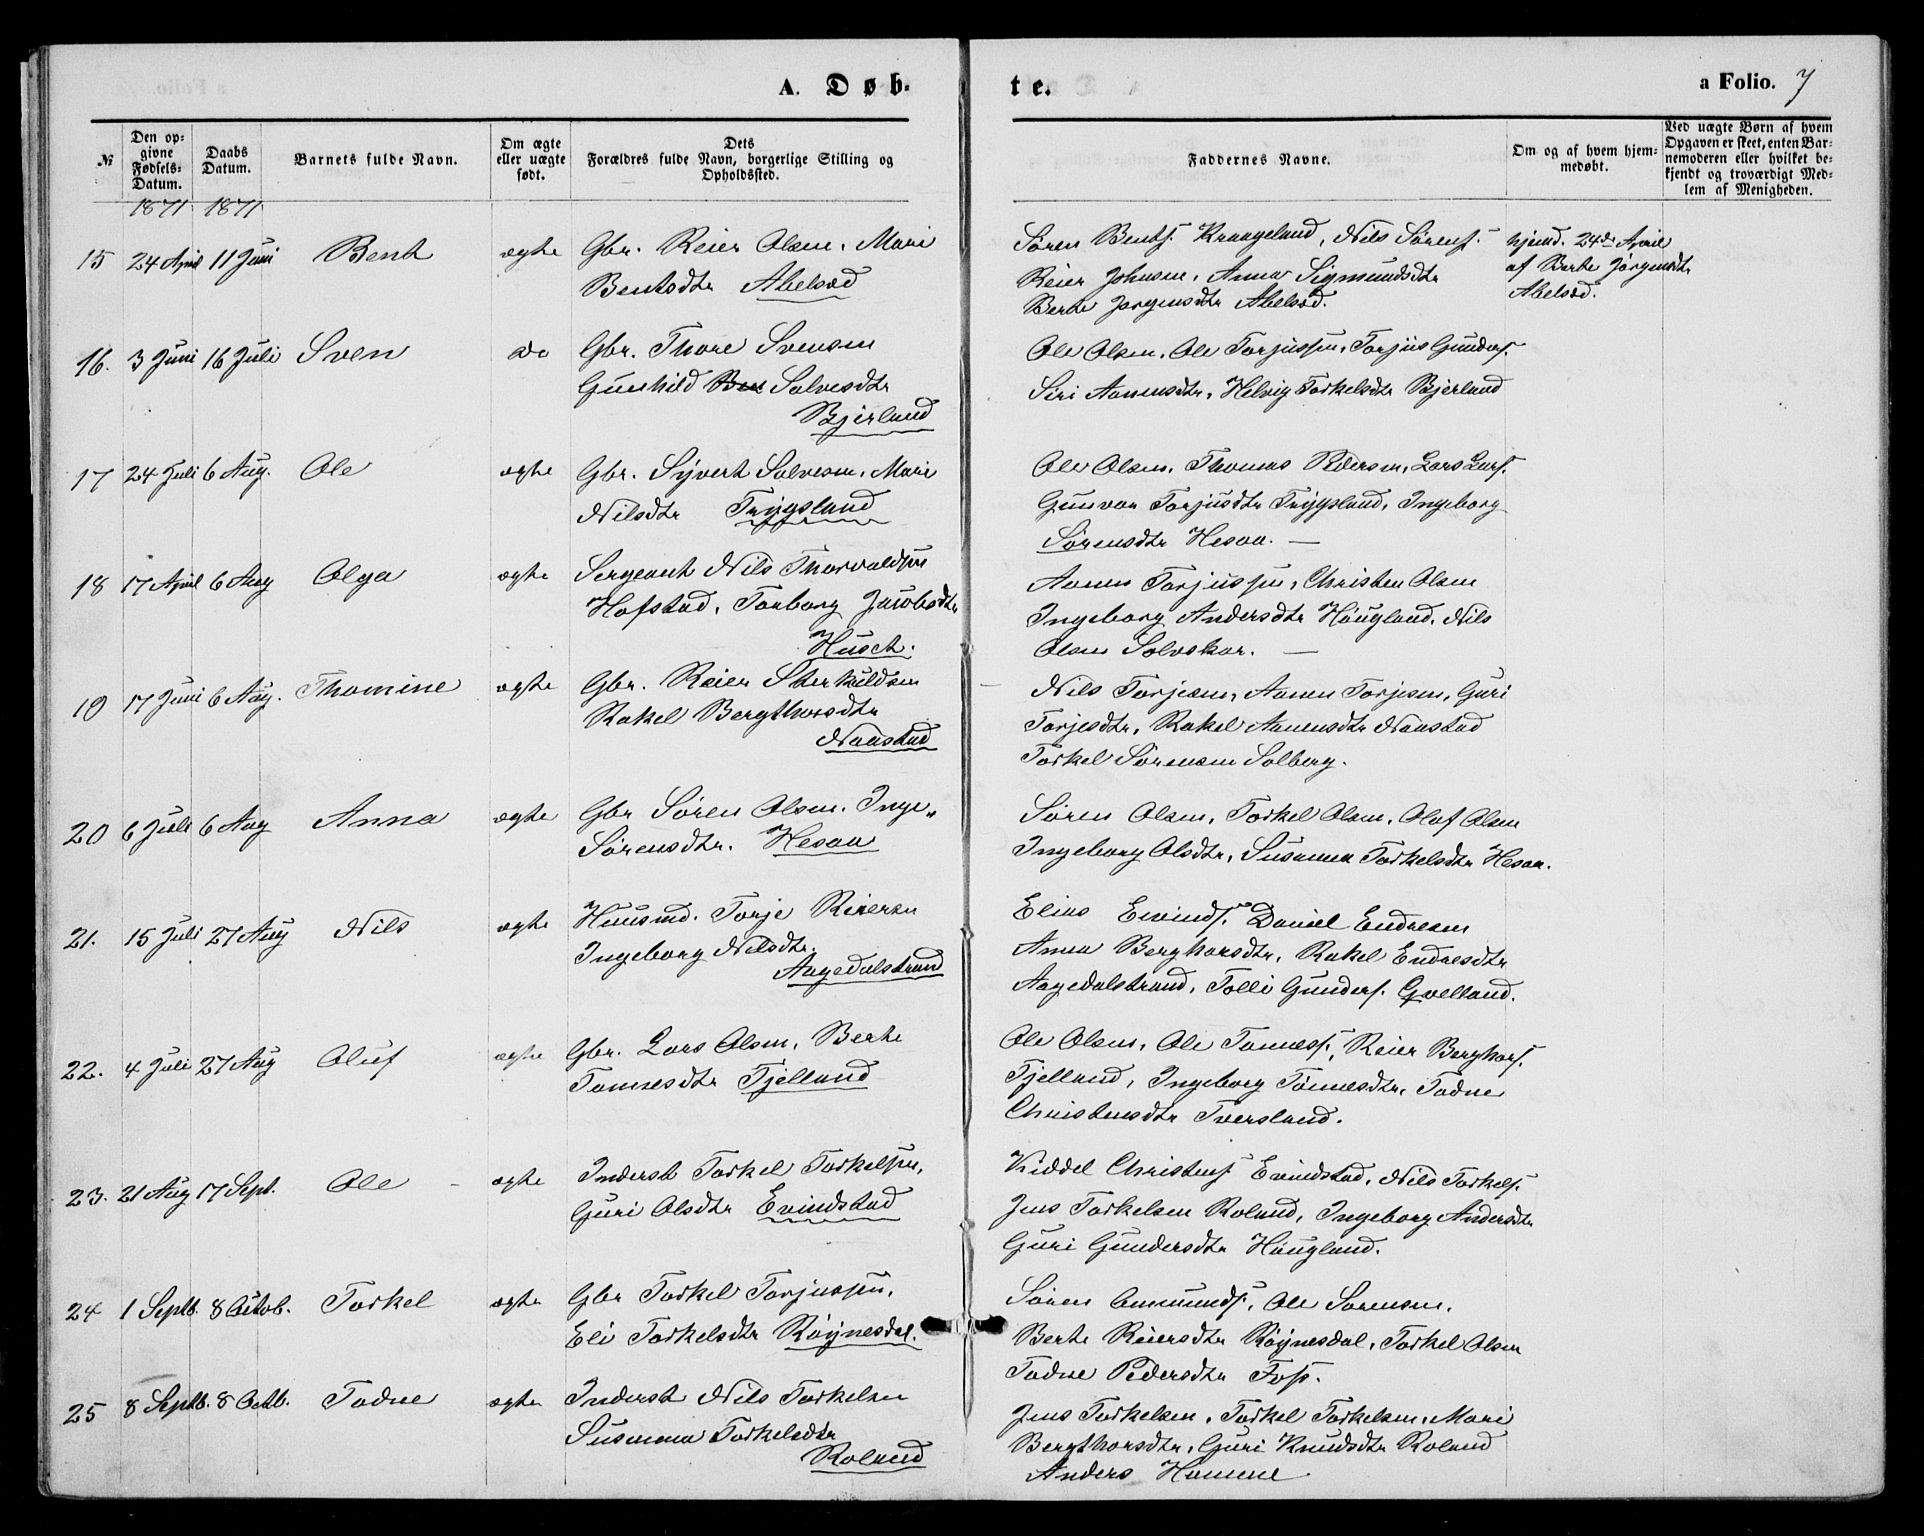 A. Døb-
te.
a Folio. 7
№
Den op-
givne
Fødsels-
Datum.
Daabs
Datum.
Barnets fulde Navn.
Om ægte
eller uægte
født.
Dets
Forældres fulde Navn, borgerlige Stilling og
Opholdssted.
Faddernes Navne.
Om og af hvem hjem-
medøbt.
Ved uægte Børn af hvem
Opgaven er skeet, enten Bar-
nemoderen eller hvilket be-
kjendt og troværdigt Med-
lem af Menigheden.
1871 1871
15 24 April 11 Juni Bent ægte Gbr. Reier Olsen, Mari
Bentsdtr Abelsæd
Søren Bents. Kraageland, Nils Sørens.
Reier Johnsen, Anna Sigmundsdtr
Berte Jørgensdtr Abelsæd.
hjemd. 24de April
af Berte Jørgensdtr
Abelsæd.
16. 3 Juni 16 Juli Sven do Gbr. Thore Svensen
Gunhild Salvesdtr
Bjerland
Ole Olsen, Ole Torjussen, Torjus Gunders.
Siri Aanensdtr, Helvig Torkelsdtr Bjerland
17 24 Juli 6 Aug. Ole ægte Gbr. Syvert Salvesen, Mari
Nilsdtr Trygsland
Ole Olsen, Thomas Pedersen, Lars Lars.
Gunvor Torjusdtr Trygsland, Ingeborg
Sørensdtr Hesaa. —
18 17 April 6 Aug Olga ægte Sergeant Nils Thorvaldsen
Hofstad, Tonborg Jacobsdtr
Huset.
Aanen Torjussen, Christen Olsen
Ingeborg Andersdtr Høugland, Nils
Olsen Solvskar. —
19 17 Juni 6 Aug. Thomine ægte Gbr. Reier Sterkuldsen
Rakel Bergthorsdtr
Naastad
Nils Torjesen, Aanen Torjesen, Guri
Torjesdtr, Rakel Aanensdtr Naastad
Torkel Sørensen Solberg.
20 6 Juli 6 Aug Anna ægte Gbr Søren Olsen, Inge„
Sørensdtr. Hesaa
Søren Olsen, Torkel Olsen, Olaf Olsen
Ingeborg Olsdtr, Susanna Torkelsdtr Hesaa.
21. 15 Juli 27 Aug Nils ægte Huusmd. Torje Reiersen
Ingeborg Nilsdtr.
Aagedalstrand
Elias Eivinds. Daniel Endresen
Anna Berghorsdtr, Rakel Endresdtr
Aagedalstrand, Tolli Gunders. Qvelland.
22. 4 Juli 27 Aug Oluf ægte Gbr. Lars Olsen, Berte
Tønnesdtr Fjelland
Ole Olsen, Ole Tønness., Reier Berghors.
Fjelland, Ingeborg Tønnesdtr, Todne
Christensdtr Tversland.
23. 21 Aug 17 Sept. Ole ægte Inderst Torkel Torkelsen,
Guri Olsdtr Evindstad
Kiddel Christens. Evindstad, Nils Torkels.
Jens Torkelsen Roland, Ingeborg Andersdtr
Guri Gundersdtr Høugland.
24 1 Septb. 8 Octob. Torkel ægte Gbr Torkel Torjussen,
Eli Torkelsdtr Røynesdal.
Søren Omunds., Ole Sørensen,
Berte Reiersdtr Røynesdal, Torkel Olsen
Todne Pedersdtr Foss.
25 8 Septb. 8 Octb. Todne ægte Inderst Nils Torkelsen
Susanna Torkelsdtr
Roland
Jens Torkelsen, Torkel Torkelsen, Mari
Bergthorsdtr, Guri Knudsdtr Roland
Anders Homme.